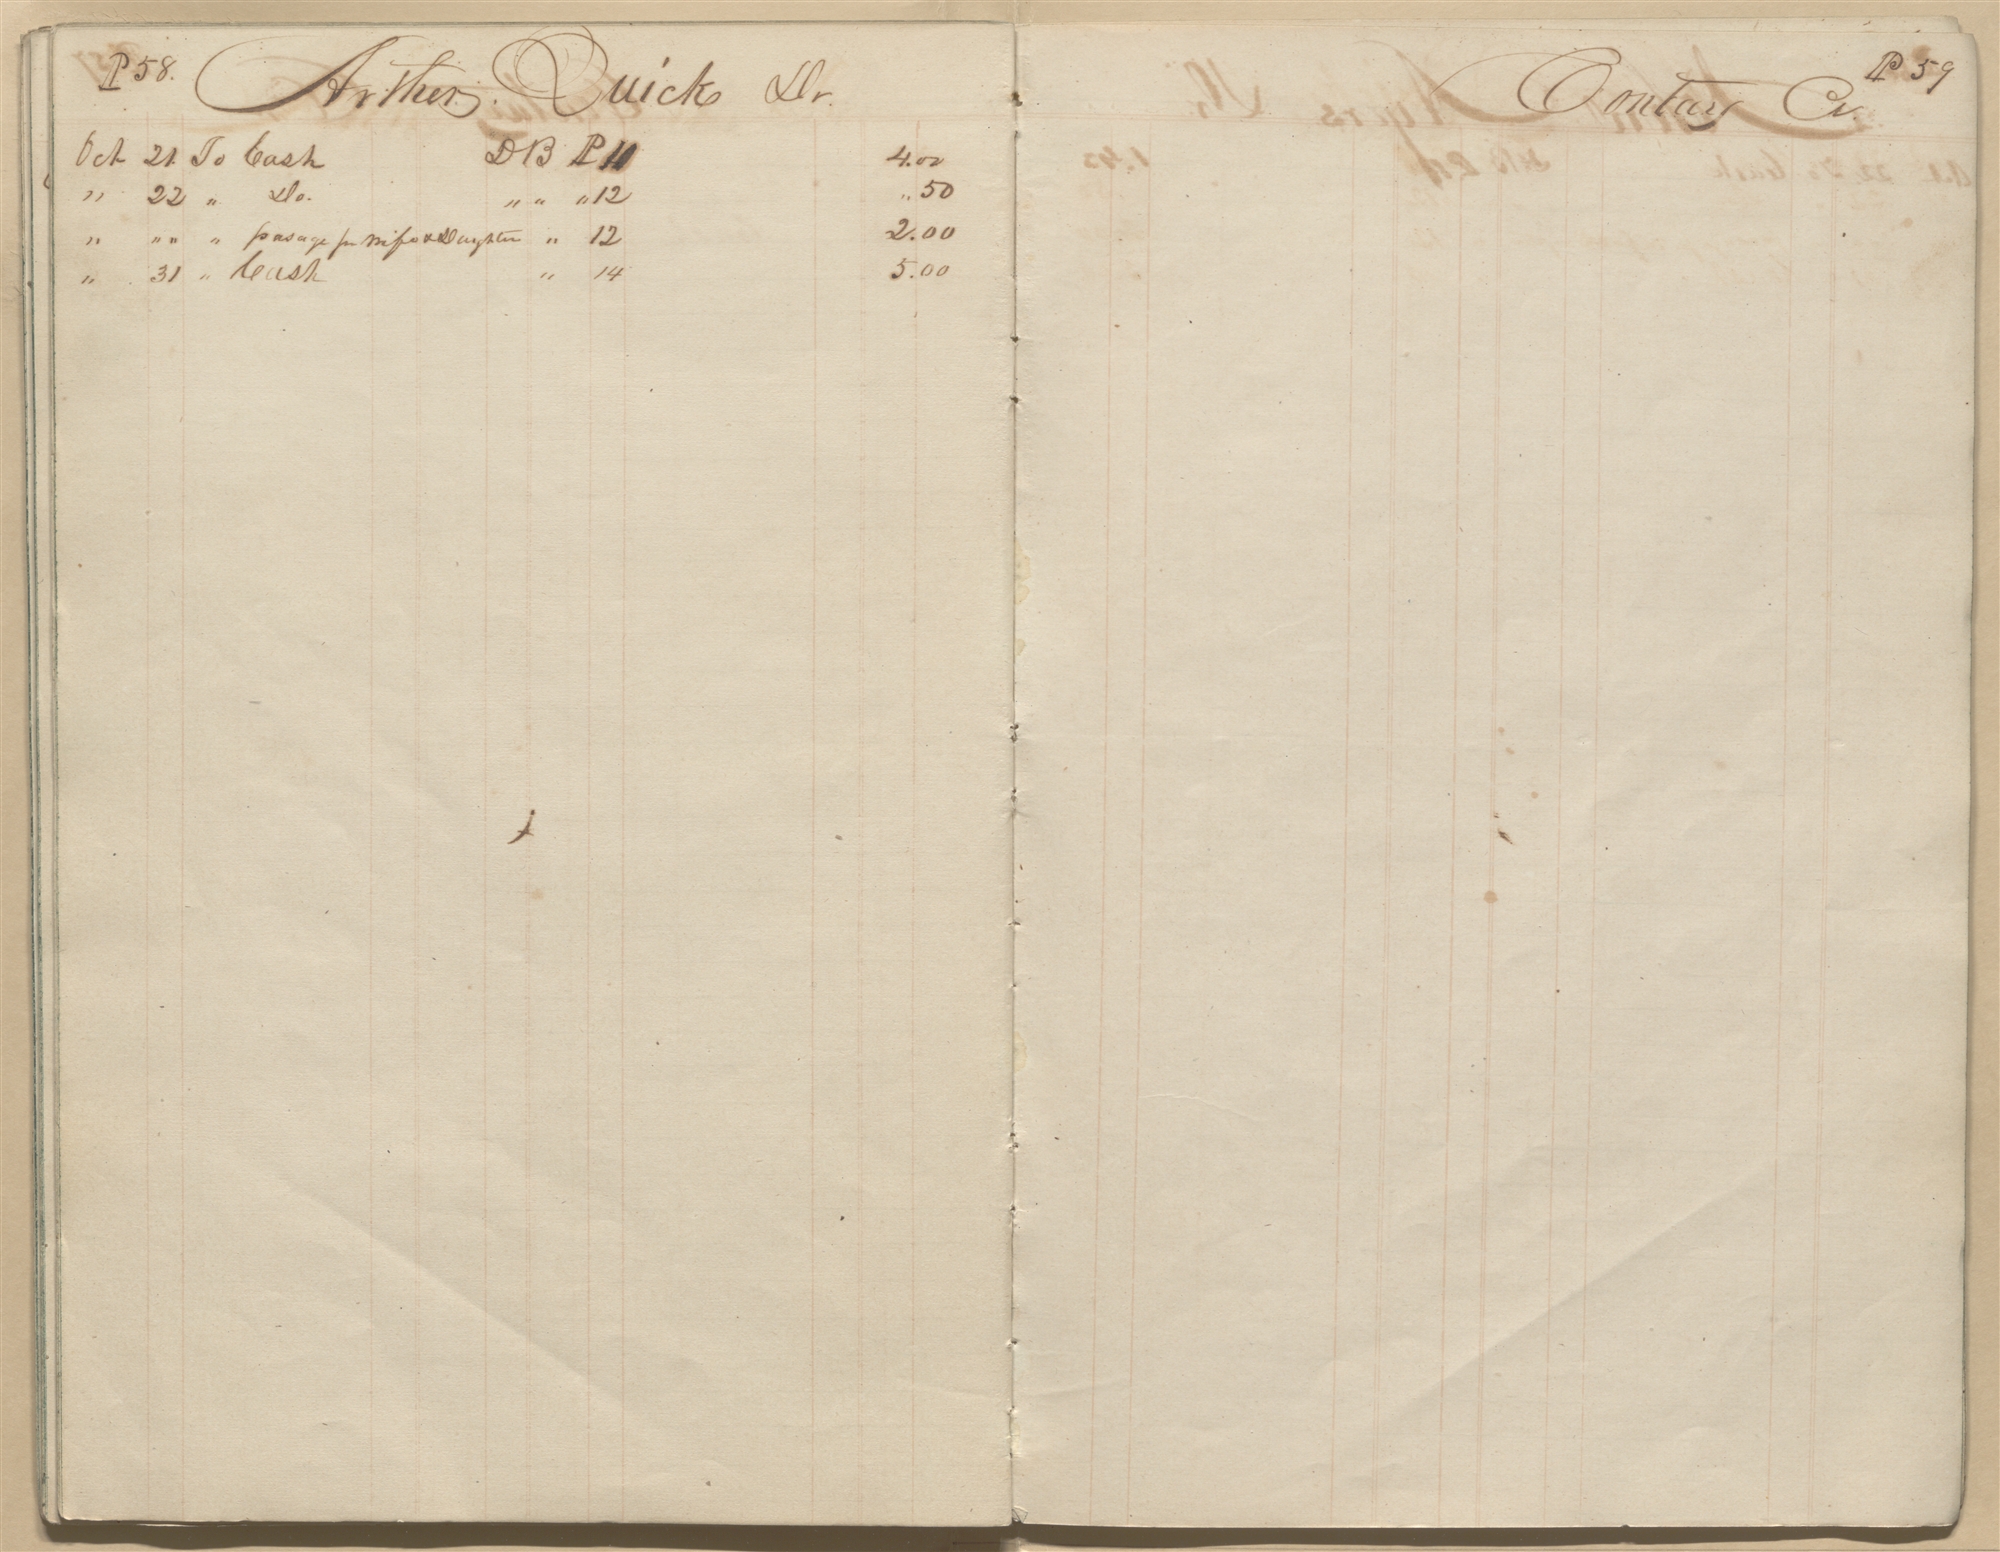 P 58. Arther Quick Dr.
Oct 21 To Cash D B P 10 4.00
" 22 " Do. " " " 12 .. 50
" " " " pasage for Wife & Daughter " 12 2.00
" 31 " Cash " 14 5.00
P 59
Contary Cr.